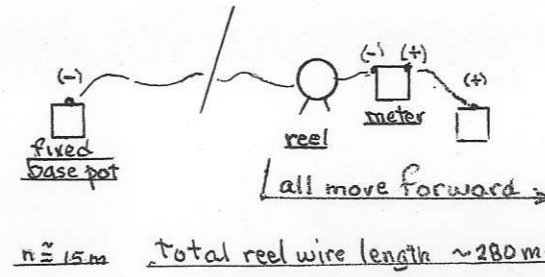 (-) (-) (+) (+)
fixed
base pot
reel
meter
all move forward
n ≅ 15 m total reel wire length ~280 m